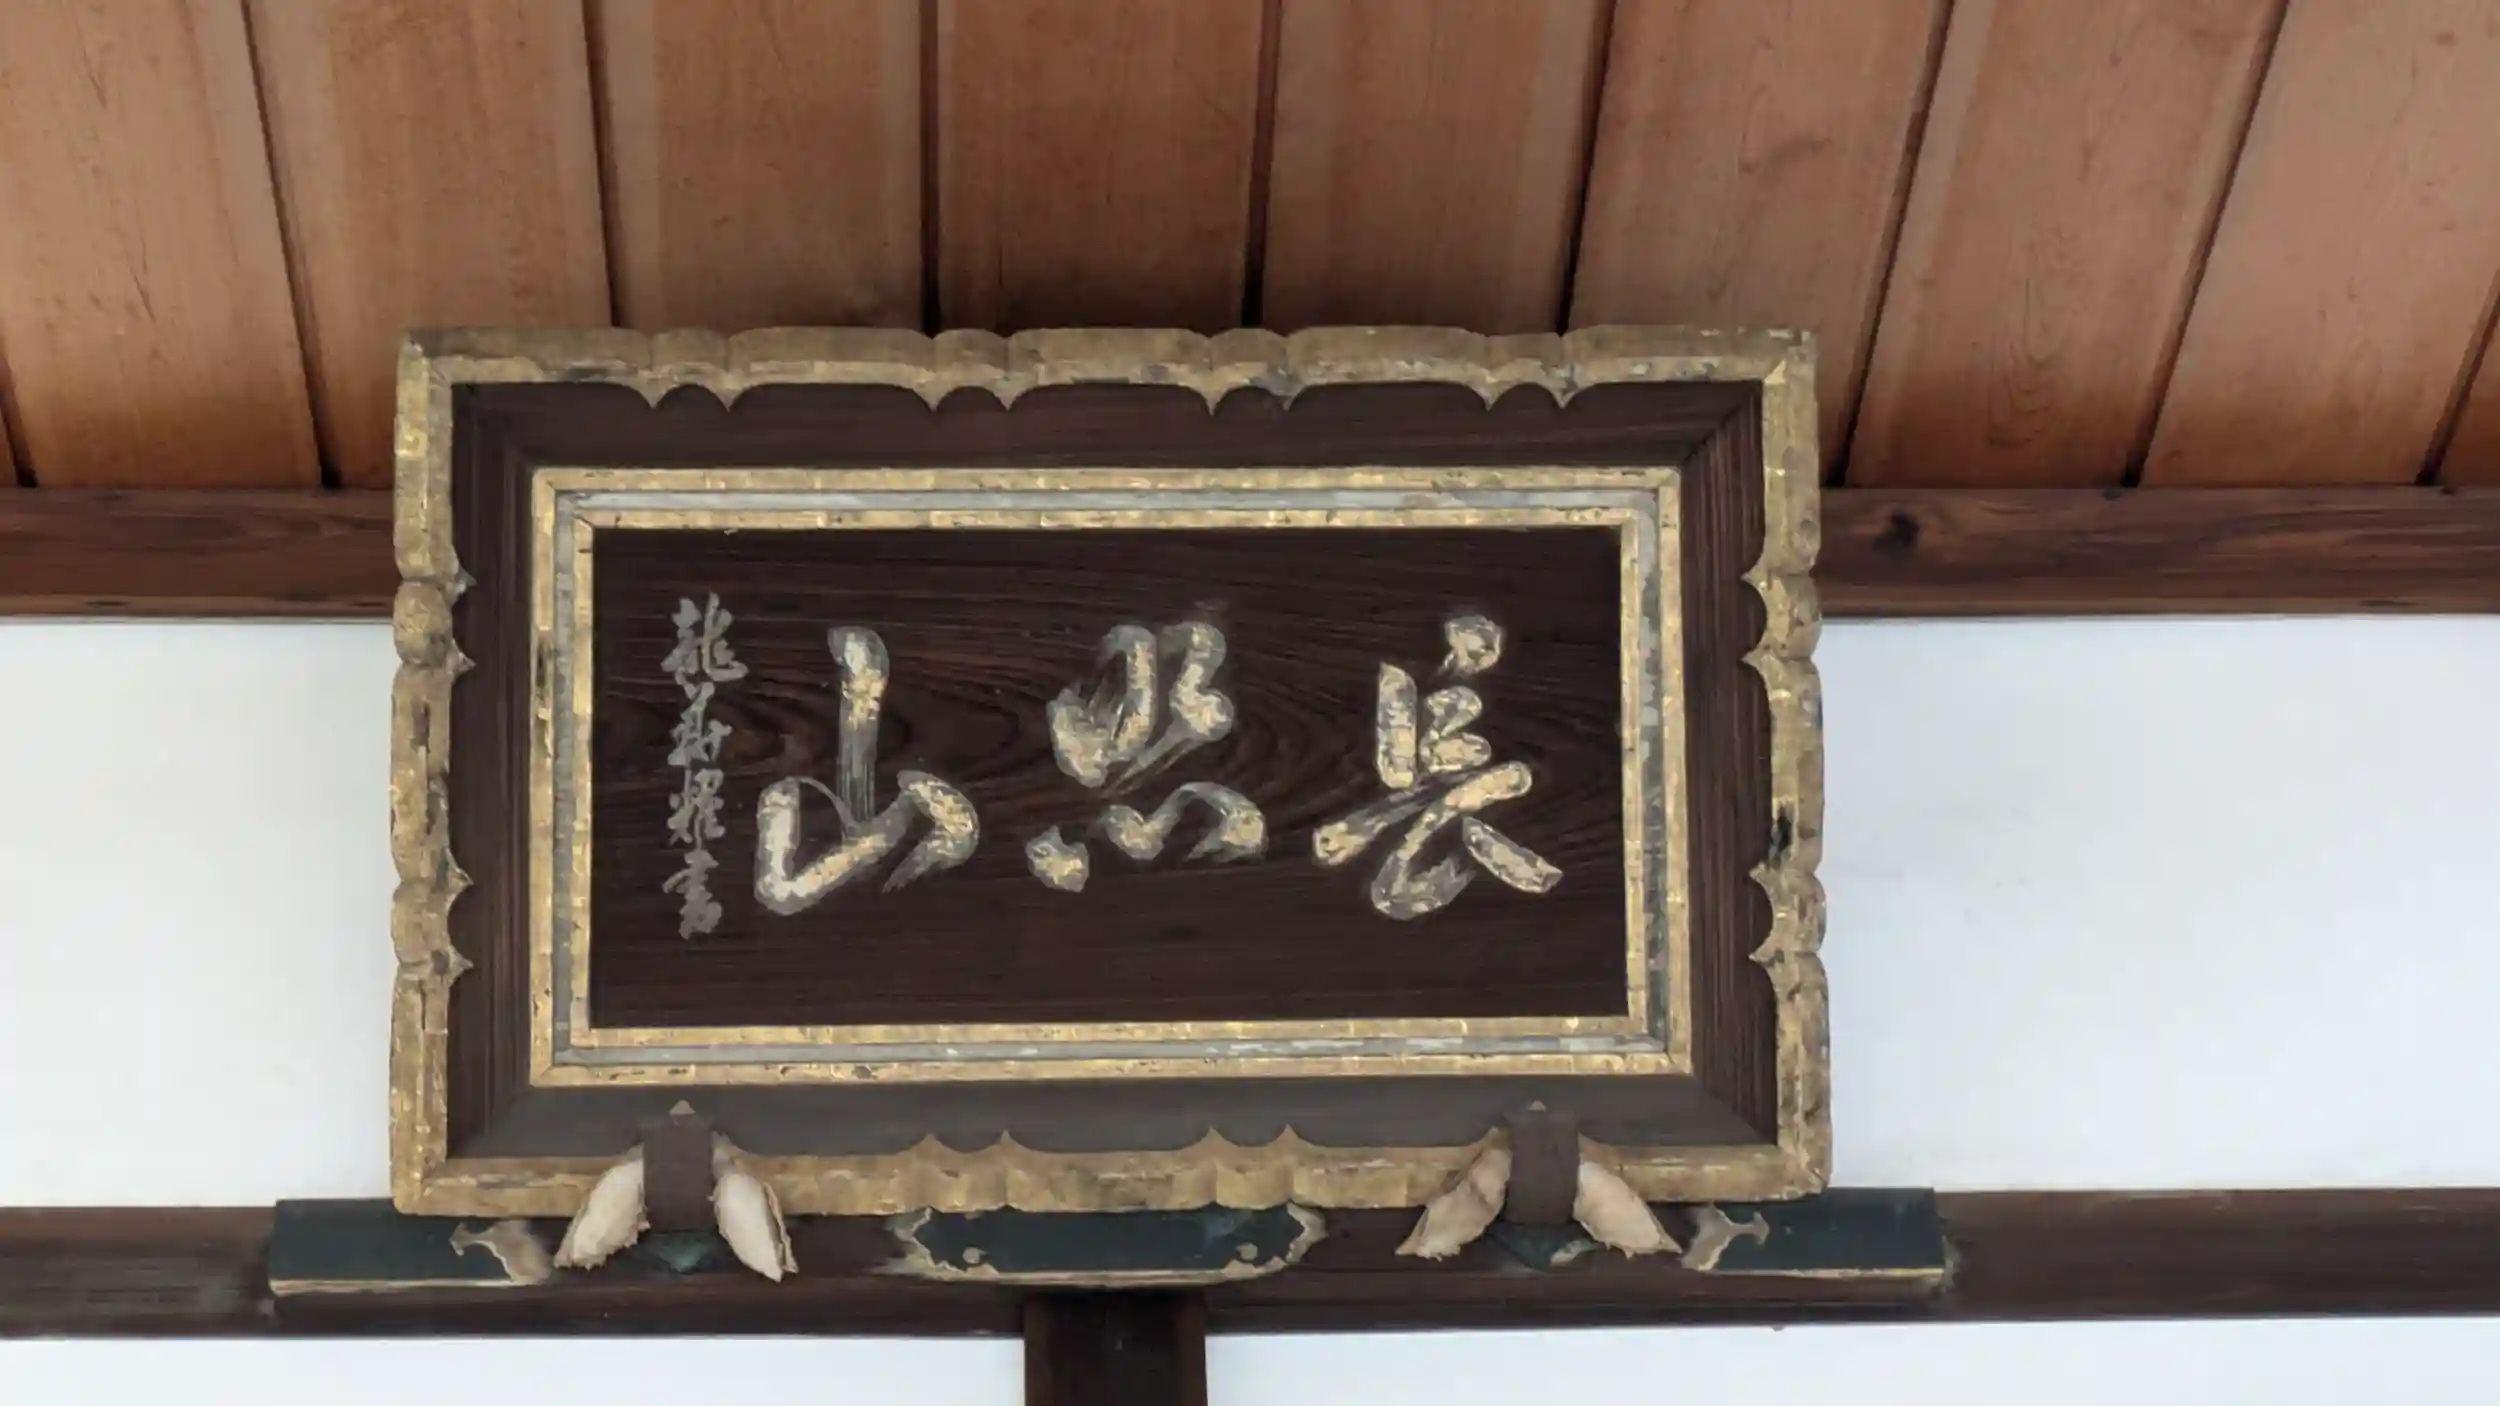 長照山
龍草耀書